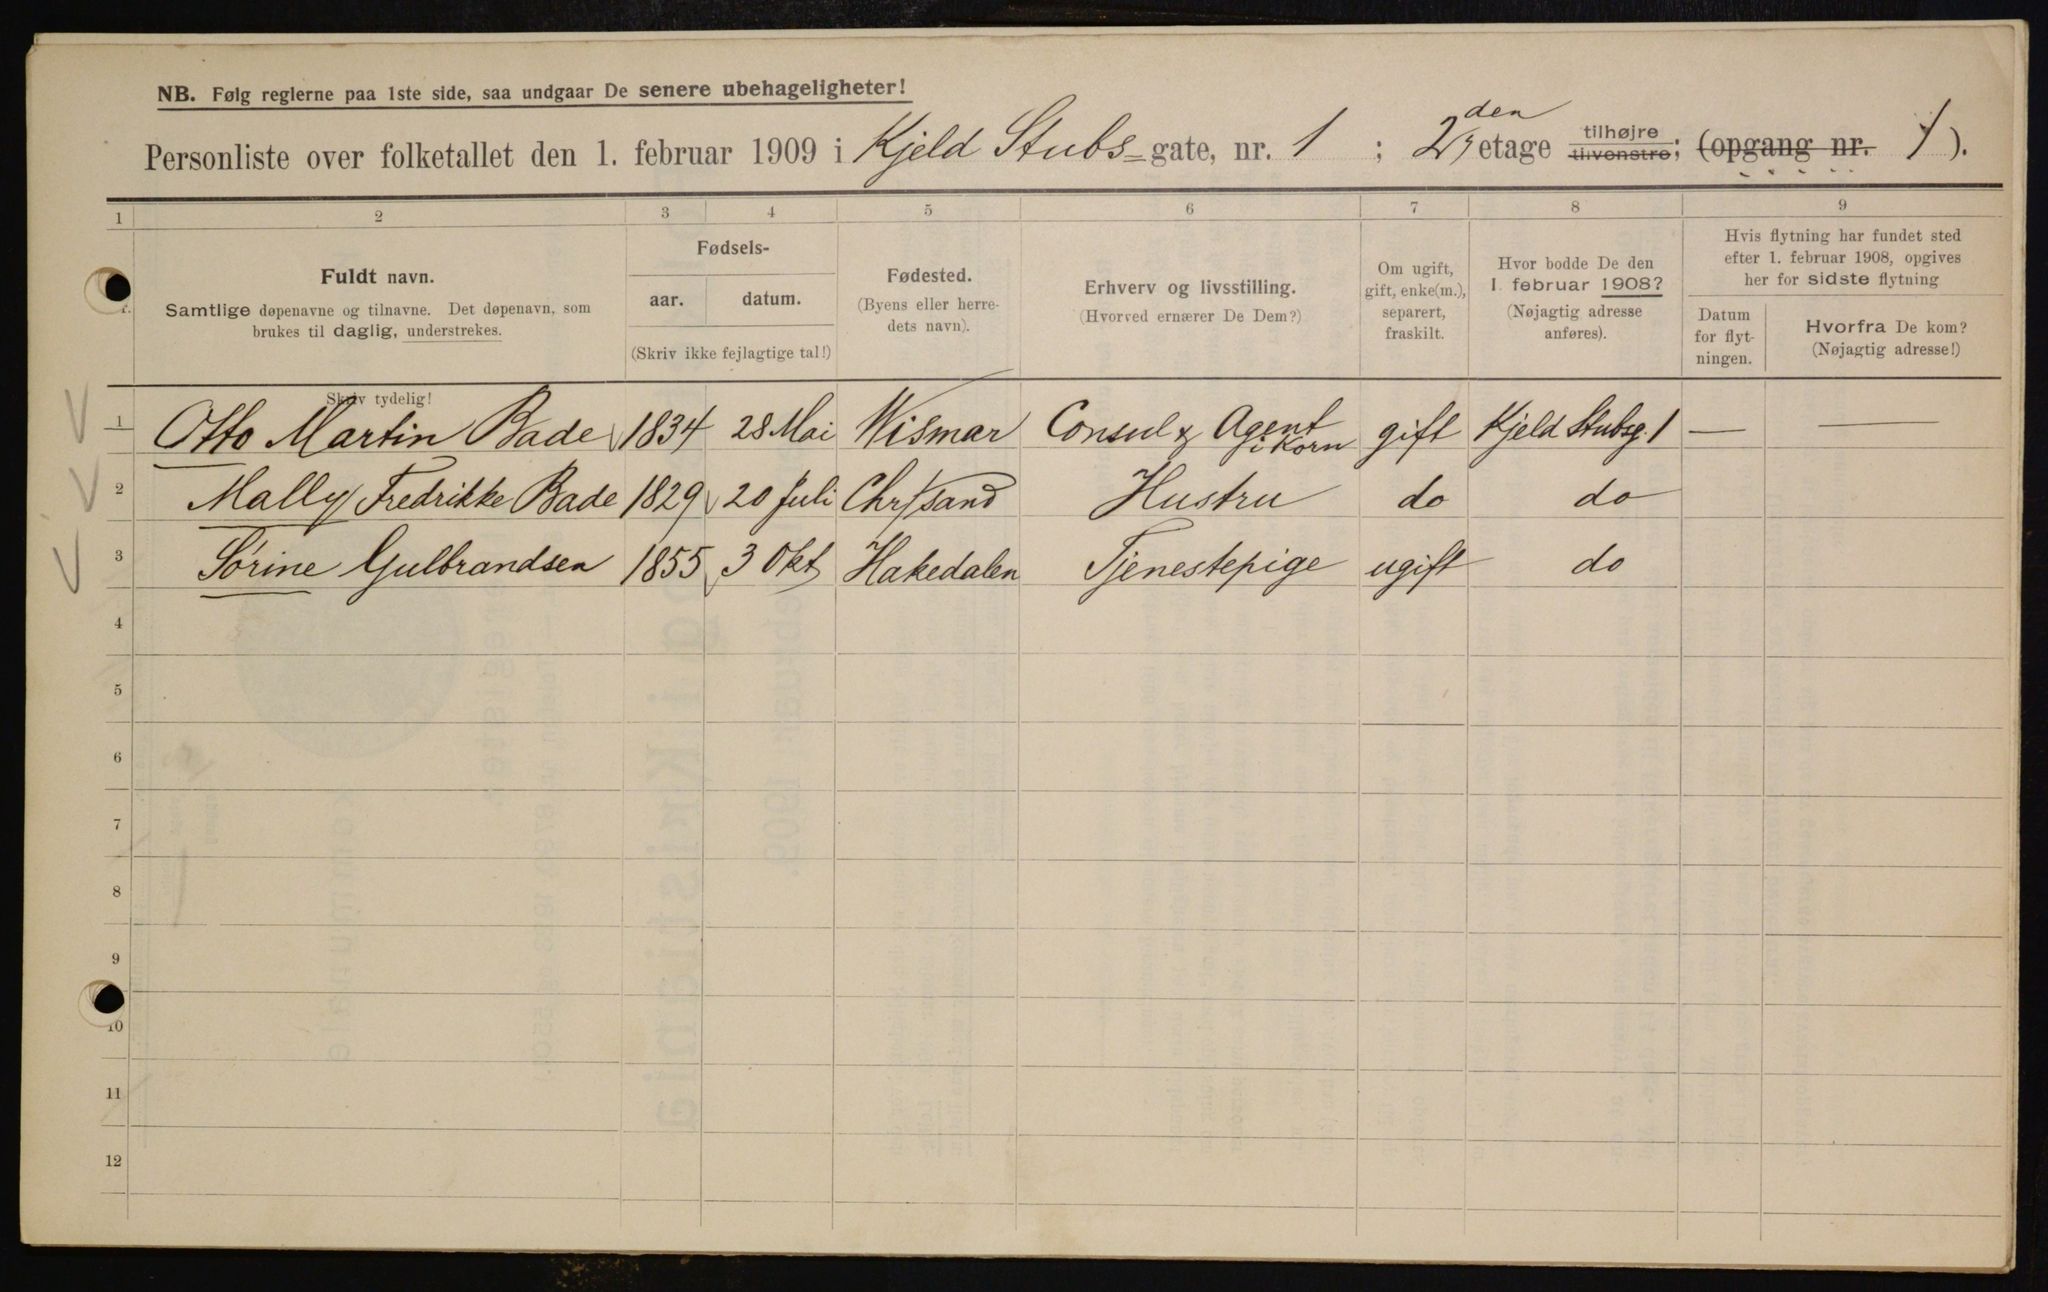 NB. Følg reglerne paa 1ste side, saa undgaar De senere ubehageligheter!
Personliste over folketallet den 1. februar 1909 i Kjeld Stubs=gate, nr. 1 ; 2den etage tilhøjre tilvenstre; (opgang nr. 1).
1 2 3 4 5 6 7 8 9
Fuldt navn.
Samtlige døpenavne og tilnavne. Det døpenavn, som
brukes til daglig, understrekes.
Skriv tydelig!
Fødsels-
aar. datum.
(Skriv ikke fejlagtige tal!)
Fødested.
(Byens eller herre-
dets navn).
Erhverv og livsstilling.
(Hvorved ernærer De Dem?)
Om ugift,
gift, enke(m.),
separert,
fraskilt.
Hvor bodde De den
1. februar 1908?
(Nøjagtig adresse
anføres).
Hvis flytning har fundet sted
efter 1. februar 1908, opgives
her for sidste flytning
Datum
for flyt-
ningen.
Hvorfra De kom?
(Nøjagtig adresse!)
1 Otto Martin Bade 1834 28 Mai Wismar Consul & Agent i Korn gift Kjeld Stubsg. 1 — —
2 Mally Fredrikke Bade 1829 20 Juli Chr/sand Hustru do do
3 Sørine Gulbrandsen 1855 3 Okt Hakedalen Tjenestepige ugift do
4
5
6
7
8
9
10
11
12